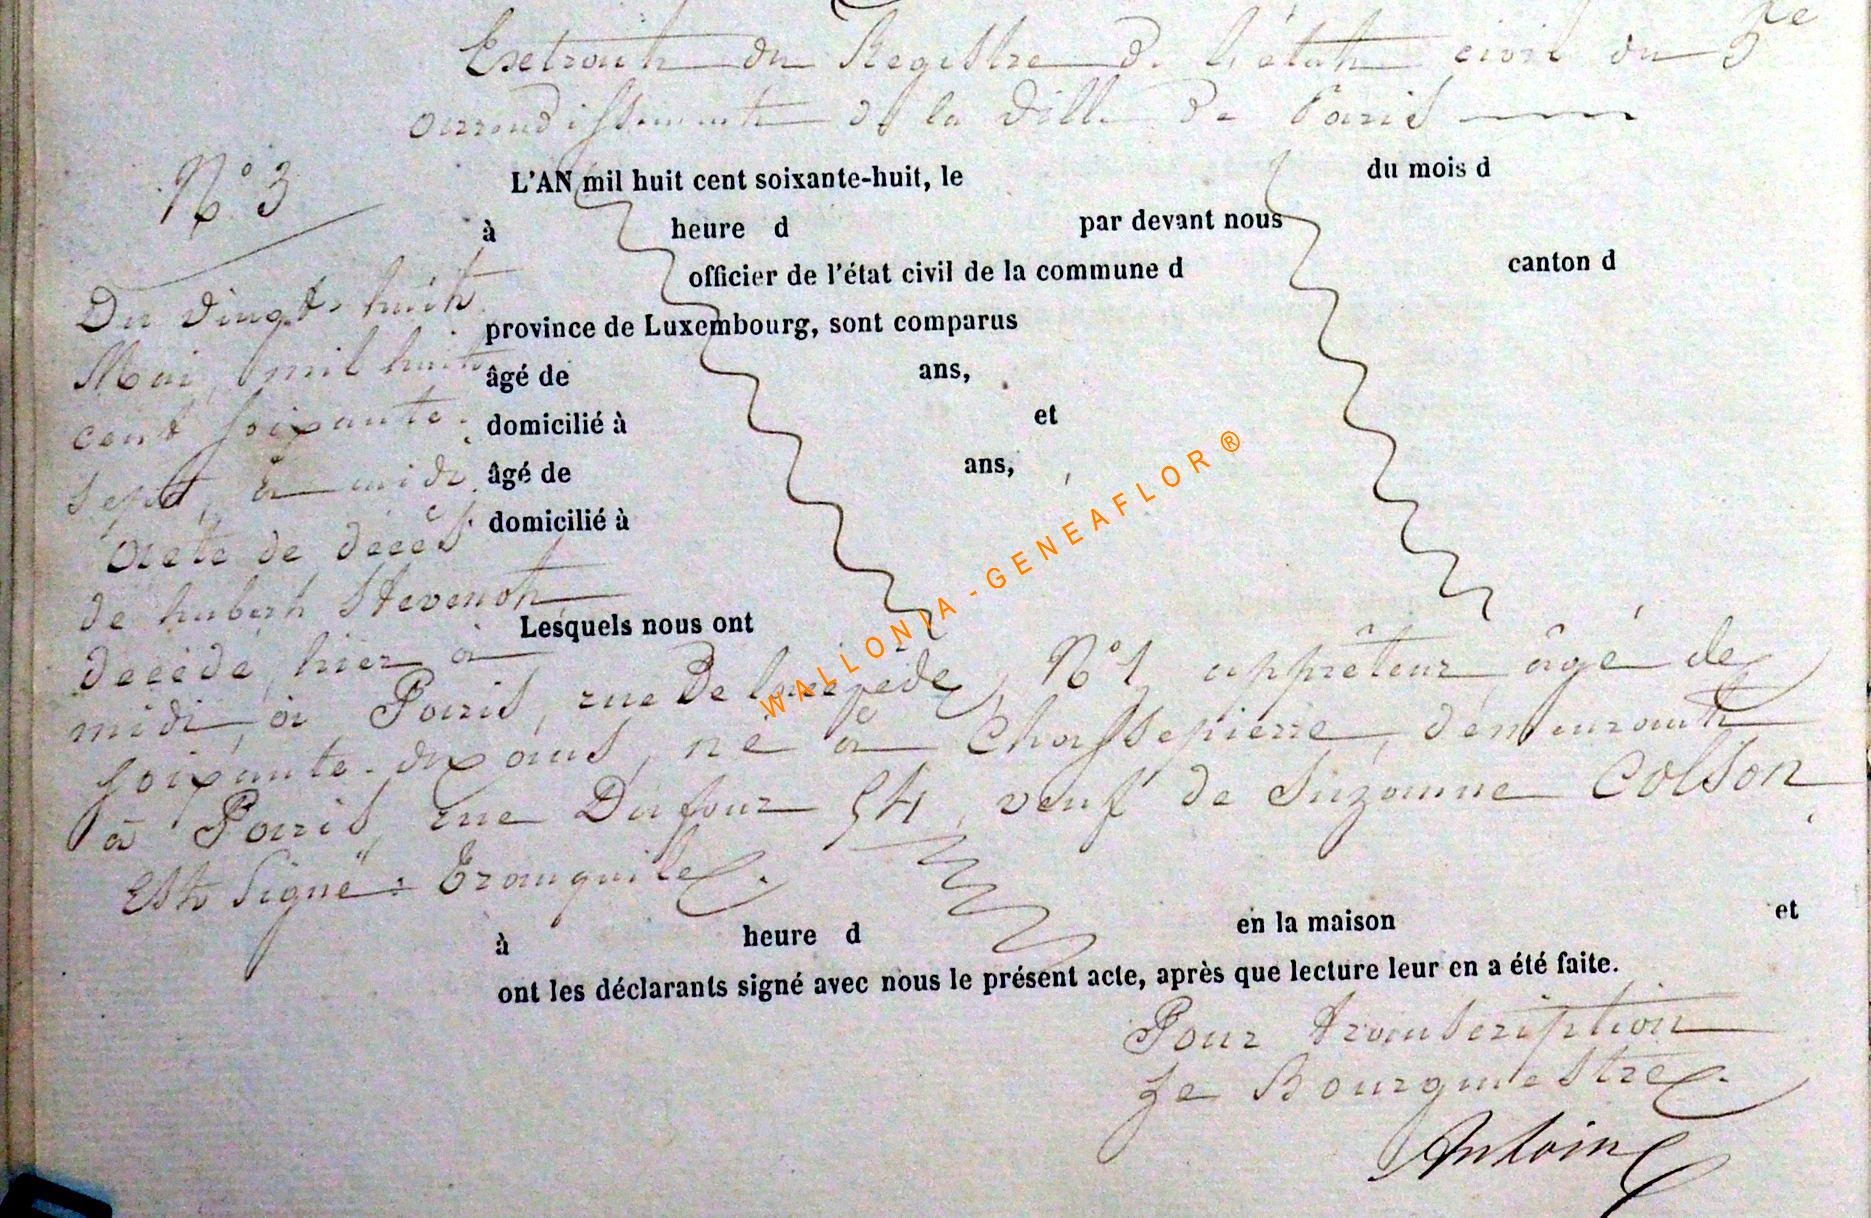 Extrait du Registre de l'état civil du 5e
arrondissement de la Ville de Paris
N° 3
L'AN mil huit cent soixante-huit, le du mois d
à heure d par devant nous
officier de l'état civil de la commune d canton d
province de Luxembourg, sont comparus
âgé de ans,
domicilié à et
âgé de ans,
domicilié à
Du vingt-huit
Mai, mil huit
cent soixante-
sept, à midi.
Acte de décès
de hubert Stevenot
Lesquels nous ont
décédé hier à
midi, à Paris, rue De Lacépède, N° 1 apprêteur, âgé de
soixante-dix ans, né à Chassepierre, demeurant
à Paris, rue Dufour 54, veuf de Suzanne Colson
Est Signé : Tranquile.
à heure d en la maison et
ont les déclarants signé avec nous le présent acte, après que lecture leur en a été faite.
Pour transcription
Le Bourgmestre.
Antoine
WALLONIA-GENEAFLOR ®